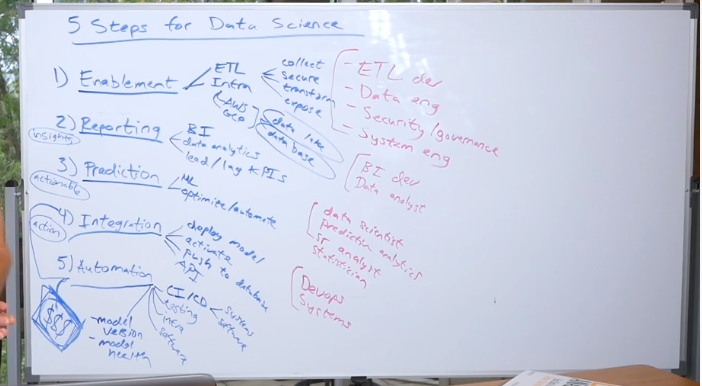 5 Steps for Data Science
1) Enablement
ETL
Infra
AWS
GCP
collect
secure
transform
expose
data lake
data base
- ETL dev
- Data eng
- Security/governance
- System eng
2) Reporting
insights
BI
data analytics
lead/lag KPIs
BI dev
Data analyst
3) Prediction
actionable
ML
optimize/automate
data scientist
prediction analytics
sr analyst
statistician
4) Integration
action
deploy model
activate
push to database
API
Devops
Systems
5) Automation
$$$
- model
version
- model
health
CI/CD
testing
infra
software
systems
software